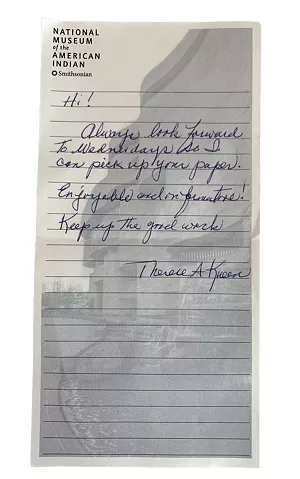 NATIONAL
MUSEUM
of the
AMERICAN
INDIAN
Smithsonian
Hi!
Always look forward
to Wednesdays so I
can pick up your paper.
Enjoyable and informative!
Keep up the good work
Therese A